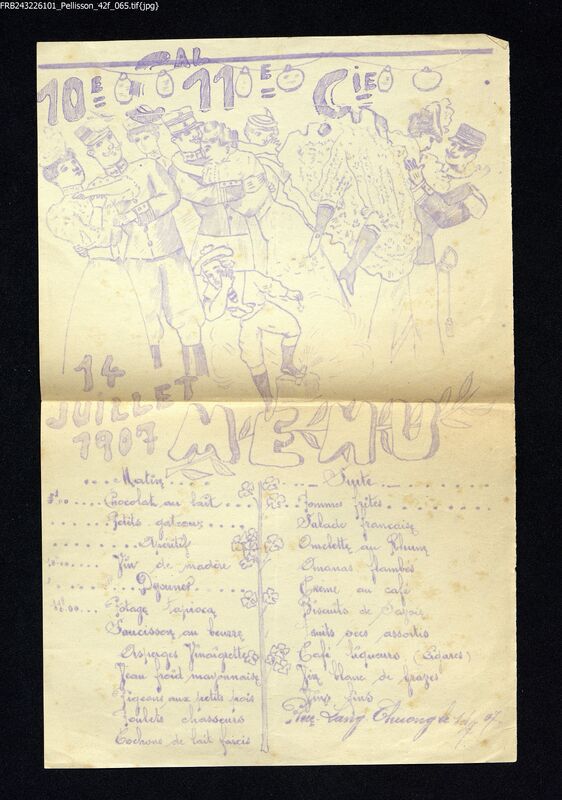 FRB243226101_Pellisson_42f_065.tif{jpg}
BAL
10E 11E CIE
14
JUILLET
1907
MENU
Matin
Chocolat au lait
Petits gateaux
Apéritif
Vin de madère
Dejeuner
Potage tapioca
Saucisson au beurre
Asperges Vinaigrette
Veau froid mayonnaise
Pigeons aux petits pois
Poulets chasseurs
Cochons de lait farcis
Suite
Pommes frites
Salade française
Omelette au Rhum
Ananas flambés
Creme au café
Biscuits de Savoie
Fruits secs assortis
Café liqueurs (Cigares)
Vin blanc de
Vins fins
Lang Chuong le 07